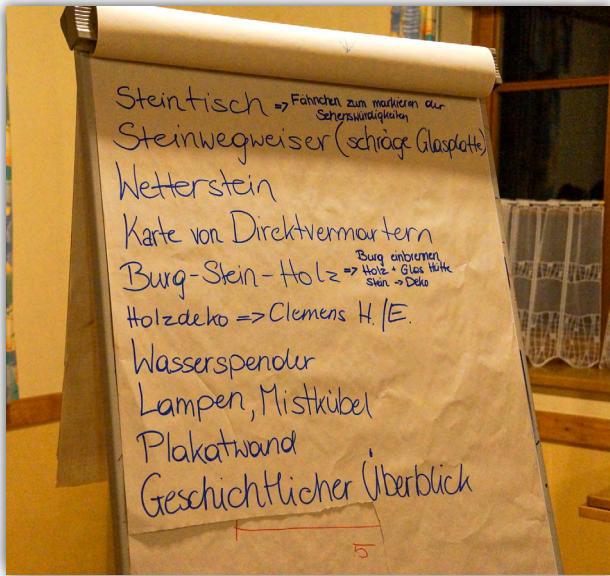 Steintisch => Fähnchen zum markieren der
Sehenswürdigkeiten
Steinwegweiser (schräge Glasplatte)
Wetterstein
Karte von Direktvermartern
Burg-Stein-Holz => Burg einbrennen
Holz + Glas Hütte
Stein -> Deko
Holzdeko => Clemens H./E.
Wasserspender
Lampen, Mistkübel
Plakatwand
Geschichtlicher Überblick
5